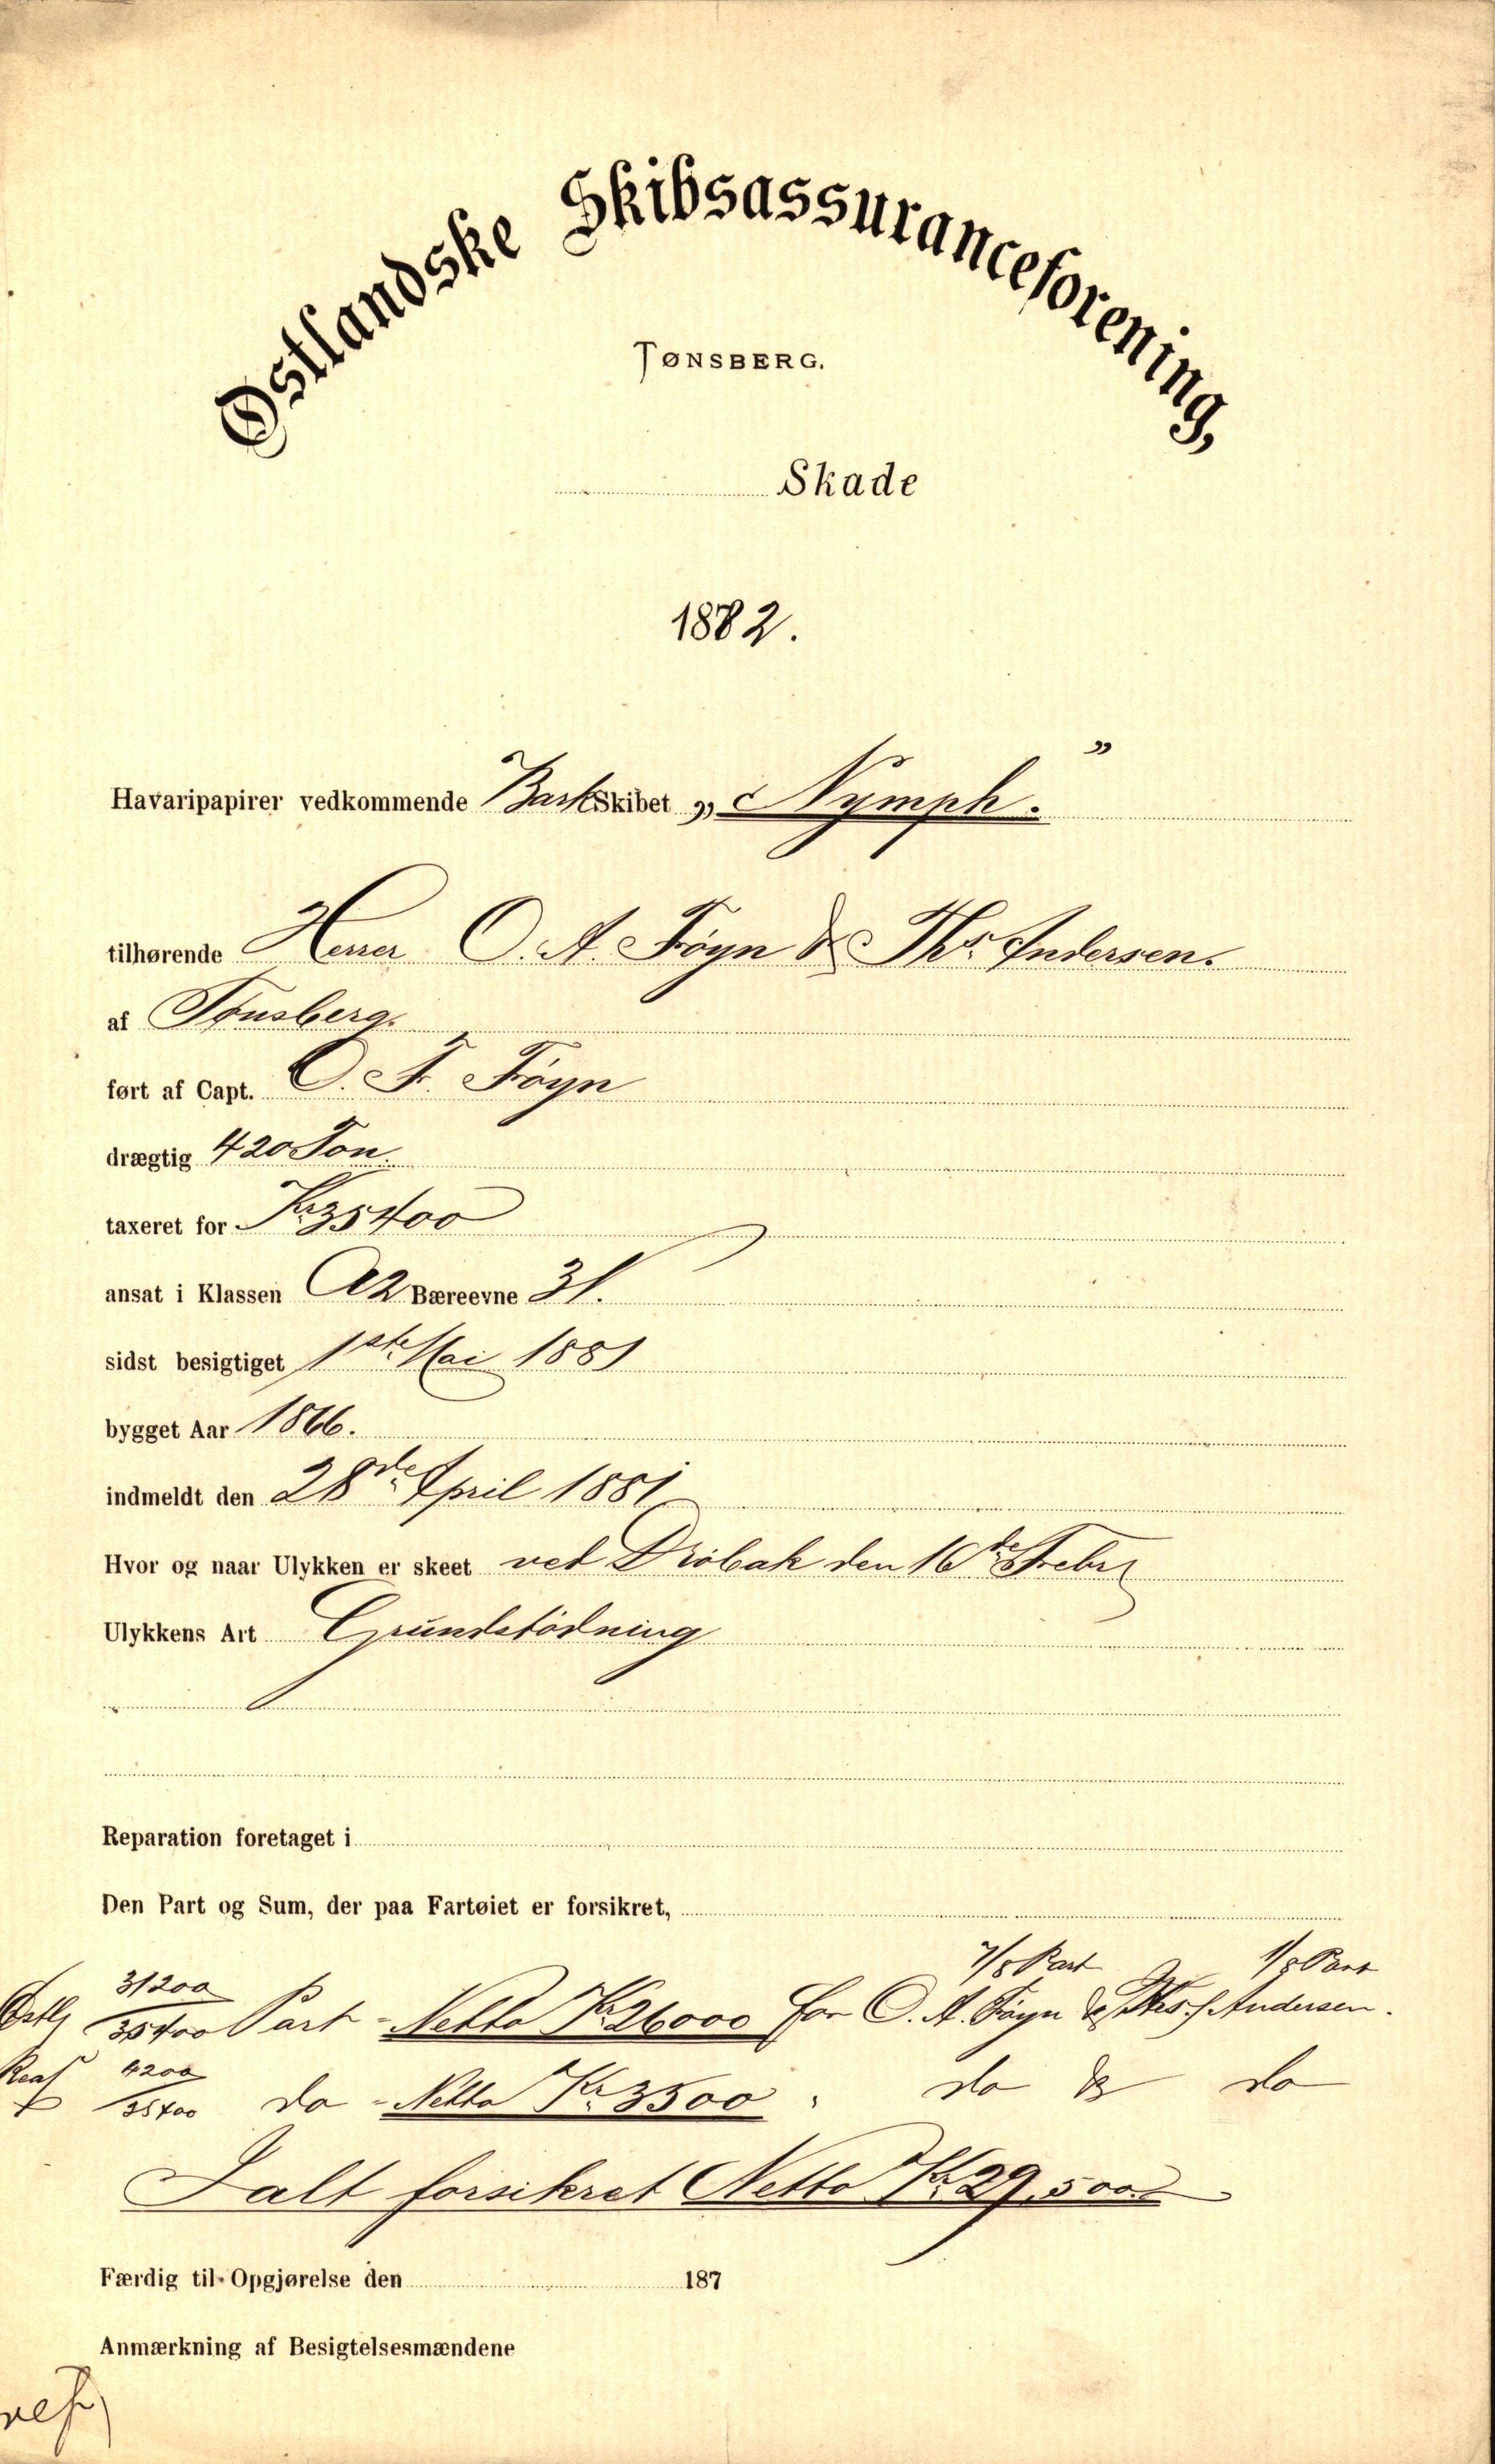 Østlandske Skibsassuranceforening,
TØNSBERG.
Skade
1882.
Havaripapirer vedkommende Bark Skibet „Nymph.”
tilhørende Herrer O. A. Föyn & Ths. Andersen.
af Tønsberg.
ført af Capt. O. F. Föyn
drægtig 420 Ton.
taxeret for Kr 35400
ansat i Klassen A2 Bæreevne 31.
sidst besigtiget 1ste Mai 1881
bygget Aar 1866.
indmeldt den 28de April 1881
Hvor og naar Ulykken er skeet ved Dröbak den 16de Febr
Ulykkens Art Grundstödning
Reparation foretaget i
Den Part og Sum, der paa Fartøiet er forsikret,
7/8 Part 1/8 Part
Østl 31200/35400 Part - Netto Kr 26000 for O. A. Föyn & Ths. Andersen.
4200/35400 do - Netto Kr 3500 " do & do
Ialt forsikret Netto Kr. 29,500
Færdig til Opgjørelse den 187
Anmærkning af Besigtelsesmændene